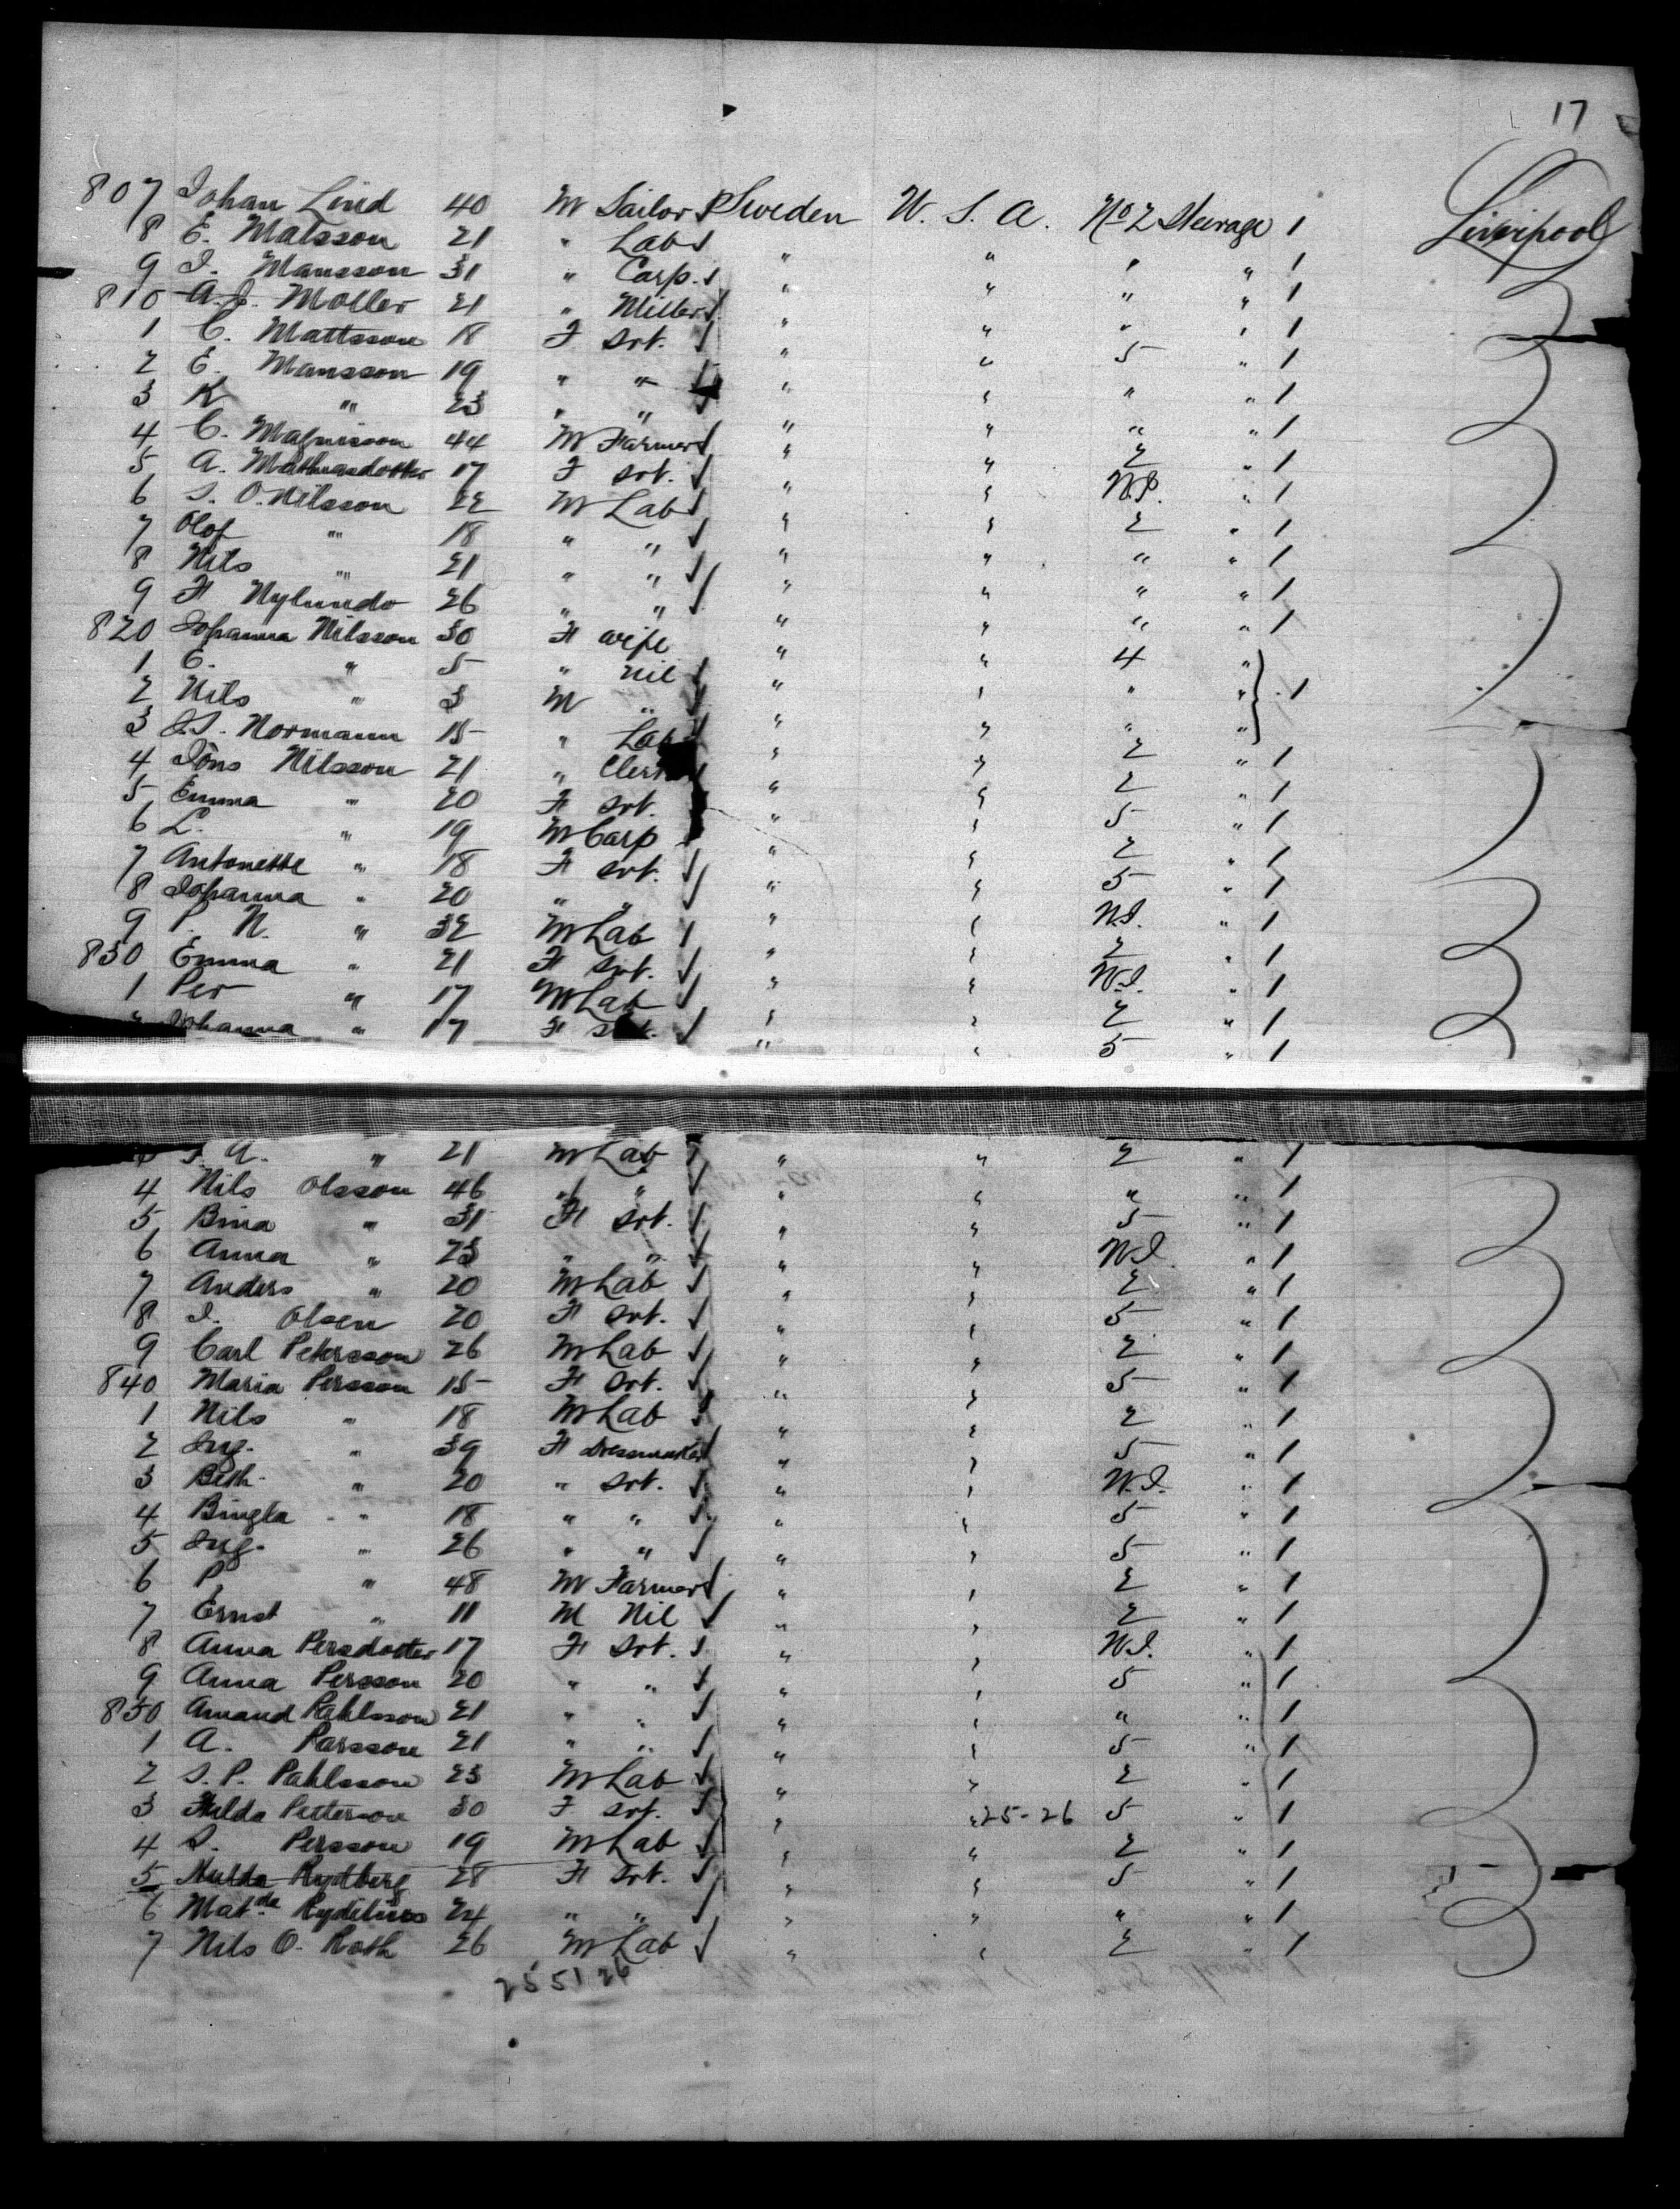 17
807 Johan Lind 40 M Sailor Sweden U. S. A. No 2 Steerage 1 Liverpool
8 E. Matsson 21 " Lab " " " " 1
9 J. Mansson 31 " Carp. " " " " 1
810 A. J. Moller 21 " Miller " " " " 1
1 C. Mattsson 18 F Srt. " " 5 " 1
2 E. Mansson 19 " " " " " " 1
3 K " 23 " " " " " " 1
4 C. Magnisson 44 M Farmer " " 2 " 1
5 A. Mathiasdotter 17 F Srt. " " N.I. " 1
6 S. O. Nilsson 22 M Lab " " 2 " 1
7 Olof " 18 " " " " " " 1
8 Nils " 21 " " " " " " 1
9 F Nylundo 26 " " " " " " 1
820 Johanna Nilsson 30 F wife " " 4 "
1 E. " 5 " nil " " " " 1
2 Nils " 3 M " " " " "
3 J. S. Normann 15 " Lab " " 2 " 1
4 Jöns Nilsson 21 " Clerk " " 2 " 1
5 Emma " 20 F Srt. " " 5 " 1
6 L. " 19 M Carp " " 2 " 1
7 Antonette " 18 F Srt. " " 5 " 1
8 Johanna " 20 " " " " N.I. " 1
9 P. N. " 32 M Lab " " 2 " 1
830 Emma " 21 F Srt. " " N.I. " 1
1 Per " 17 M Lab " " 2 " 1
Johanna " 17 F " " 5 " 1
A. " 21 M Lab " " 2 " 1
4 Nils Olsson 46 " " " " " " 1
5 Bina " 31 F Srt. " " 5 " 1
6 Anna " 23 " " " " N.I. " 1
7 Anders " 20 M Lab " " 2 " 1
8 J. Olsen 20 F Srt. " " 5 " 1
9 Carl Petersson 26 M Lab " " 2 " 1
840 Maria Persson 15 F Srt. " " 5 " 1
1 Nils " 18 M Lab " " 2 " 1
2 Ing. " 39 F Dressmaker " " 5 " 1
3 Beth. " 20 " Srt. " " N.I. " 1
4 Bingla " 18 " " " " 5 " 1
5 Ing. " 26 " " " " 5 " 1
6 P " 48 M Farmer " " 2 " 1
7 Ernst " 11 M Nil " " 2 " 1
8 Anna Persdotter 17 F Srt. " " N.I. " 1
9 Anna Persson 20 " " " " 5 " 1
850 Amand Pahlsson 21 " " " " " " 1
1 A. Parsson 21 " " " " 5 " 1
2 S. P. Pahlsson 23 M Lab " " 2 " 1
3 Hilda Petterson 30 F Srt. " " 25-26 5 " 1
4 S. Persson 19 M Lab " " 2 " 1
5 Hulda Rydberg 28 F Srt. " " 5 " 1
6 Matda Rydelius 24 " " " " " " 1
7 Nils O. Roth 26 M Lab " " 2 " 1
25 51 26